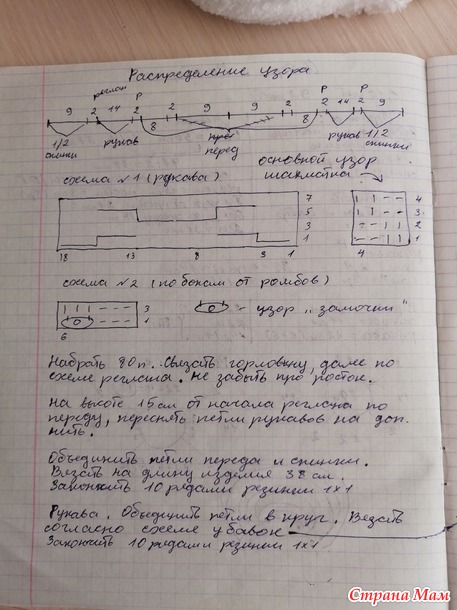 Распределение узора
реглан Р Р Р
9 2 14 2 2 9 9 2 2 14 2 9
8 8
1/2 спинки рукав перед рукав 1/2 спинки
основной узор
шахматка
схема №1 (рукава)
7
5
3
1
18 13 8 3 1
4
3
2
1
4
схема №2 (по бокам от ромбов)
3
1
6
- узор "замочки"
Набрать 80 п. Связать горловину, далее по
схеме реглана. Не забыть про росток.
На высоте 15 см от начала реглана по
переду, переснять петли рукавов на доп.
нить.
Объединить петли переда и спинки.
Вязать на длину изделия 38 см.
Закончить 10 рядами резинки 1х1
Рукава. Объединить петли в круг. Вязать
согласно схеме убавок
Закончить 10 рядами резинки 1х1
Страна Мам